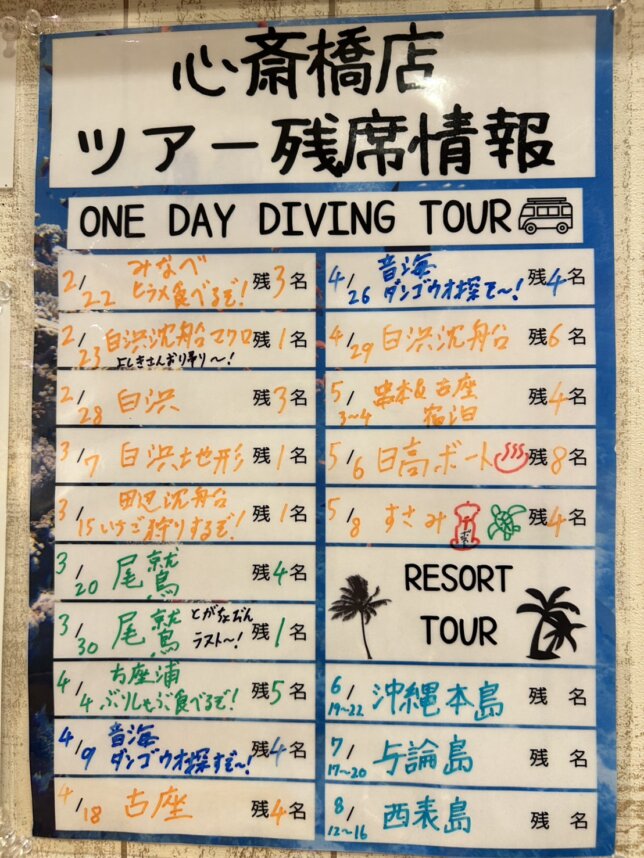 心斎橋店
ツアー残席情報
ONE DAY DIVING TOUR
2/22 みなべ 残3名
ヒラメ食べるぞ!
2/23 白浜沈船マクロ 残1名
よしきさんおり吊り〜!
2/28 白浜 残3名
3/7 白浜地形 残1名
3/15 田辺沈船 残1名
いちご狩りするぞ!
3/20 尾鷲 残4名
3/30 尾鷲 残1名
ラスト〜!
4/4 古座浦 残5名
ぶりしゃぶ食べるぞ!
4/9 音海 残4名
ダンゴウオ探すぞ〜!
4/18 古座 残4名
4/26 音海 残4名
ダンゴウオ探すぞ〜!
4/29 白浜沈船 残6名
5/3〜4 串本&古座 残4名
宿泊
5/6 日高ボート 残8名
5/8 すさみ 残4名
RESORT
TOUR
6/19〜22 沖縄本島 残 名
7/17〜20 与論島 残 名
8/12〜16 西表島 残 名